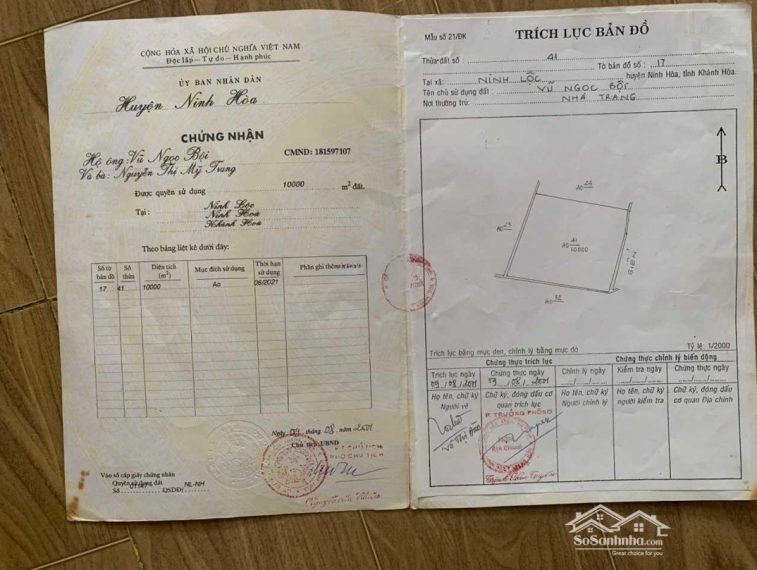 CỘNG HÒA XÃ HỘI CHỦ NGHĨA VIỆT NAM
Độc lập - Tự do - Hạnh phúc
ỦY BAN NHÂN DÂN
Huyện Ninh Hòa
CHỨNG NHẬN
Hộ ông: Vũ Ngọc Bội CMND: 181597107
Và bà: Nguyễn Thị Mỹ Trang
Được quyền sử dụng 10000 m² đất.
Tại: Ninh Lộc
Ninh Hoà
Khánh Hoà
Theo bảng liệt kê dưới đây:
Số tờ bản đồ Số thửa Diện tích (m²) Mục đích sử dụng Thời hạn sử dụng Phần ghi thêm
17 41 10000 Ao 06/2021
Ngày 09 tháng 08 năm 2001
Chủ tịch UBND
Vào sổ cấp giấy chứng nhận
Quyền sử dụng đất NL-NH
Số QSDĐ/
Mẫu số 21/ĐK
TRÍCH LỤC BẢN ĐỒ
Thửa đất số 41 Tờ bản đồ số: 17
Tại xã: NINH LỘC huyện Ninh Hòa, tỉnh Khánh Hòa.
Tên chủ sử dụng đất: VŨ NGỌC BỘI
Nơi thường trú: NHA TRANG
B
AO
AO
AO 41 10000
AO
Tỷ lệ: 1/2000
Trích lục bằng mực đen, chỉnh lý bằng mực đỏ
Chứng thực trích lục Chứng thực chỉnh lý biến động
Trích lục ngày Chứng thực ngày Chỉnh lý ngày Kiểm tra ngày Chứng thực ngày
09/08/2001 09/08/2001 .../.../... .../.../... .../.../...
Họ tên, chữ ký Người vẽ Chữ ký, đóng dấu cơ quan trích lục Họ tên, chữ ký Người chỉnh lý Họ tên, chữ ký người kiểm tra Chữ ký, đóng dấu cơ quan Địa chính
P. TRƯỞNG PHÒNG
SoSanhnha.com
Great choice for you